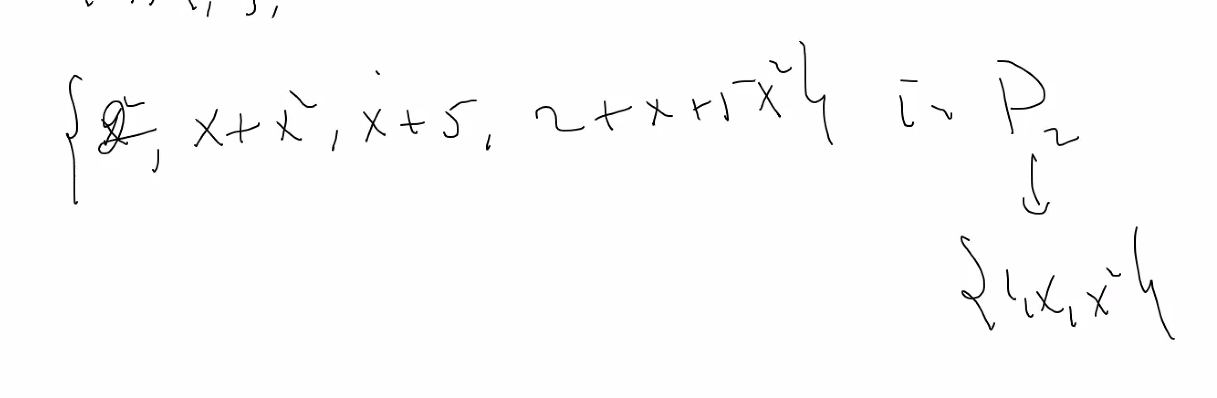 {x², x+x², x+5, 2+x+5x²} in P₂
↓
{1, x, x²}